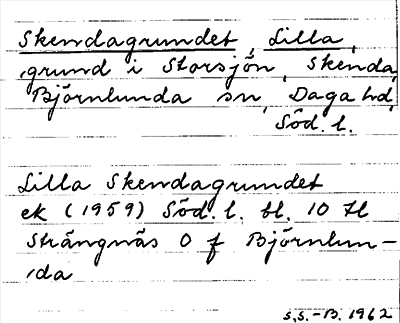 Skendagrundet, Lilla,
grund i Storsjön, Skenda,
Björnlunda sn, Daga hd,
Söd. l.
Lilla Skendagrundet
ek (1959) Söd. l. bl. 10 Hl
Strängnäs O f Björnlun-
da
S.S.-B. 1962